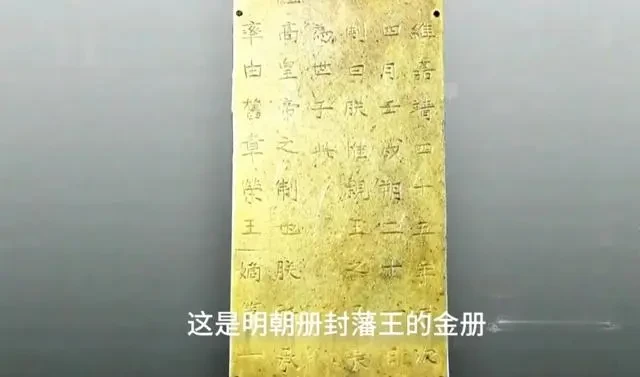 維嘉靖四十五年次
四月壬戌朔二十日
制曰朕惟親王之
為世子此
高皇帝之制也朕承
率由舊章榮王嫡第一
这是明朝册封藩王的金册